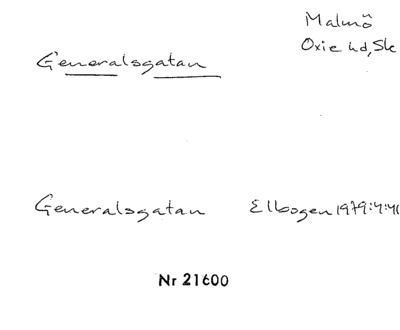 Malmö
Oxie hd, Sk
Generalsgatan
Generalsgatan Elbogen 1979:4:40
Nr 21600